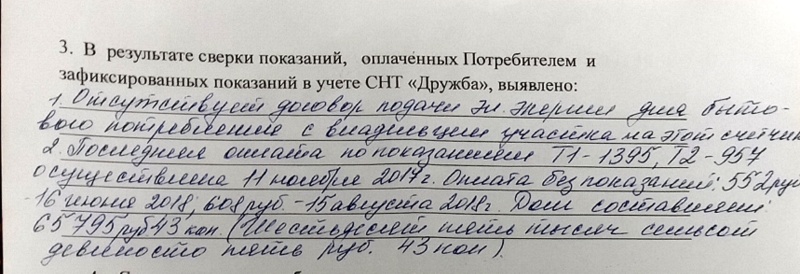 3. В результате сверки показаний, оплаченных Потребителем и
зафиксированных показаний в учете СНТ «Дружба», выявлено:
1. Отсутствует договор подачи эл. энергии для быто-
вого потребления с владельцем участка на этот счетчик
2. Последняя оплата по показаниям Т1-1395, Т2-957
осуществлена 11 ноября 2017 г. Оплата без показаний: 552 руб
-16 июня 2018, 608 руб. - 15 августа 2018 г. Долг составляет:
65795 руб 43 коп. (Шестьдесят пять тысяч семьсот
девяносто пять руб. 43 коп).